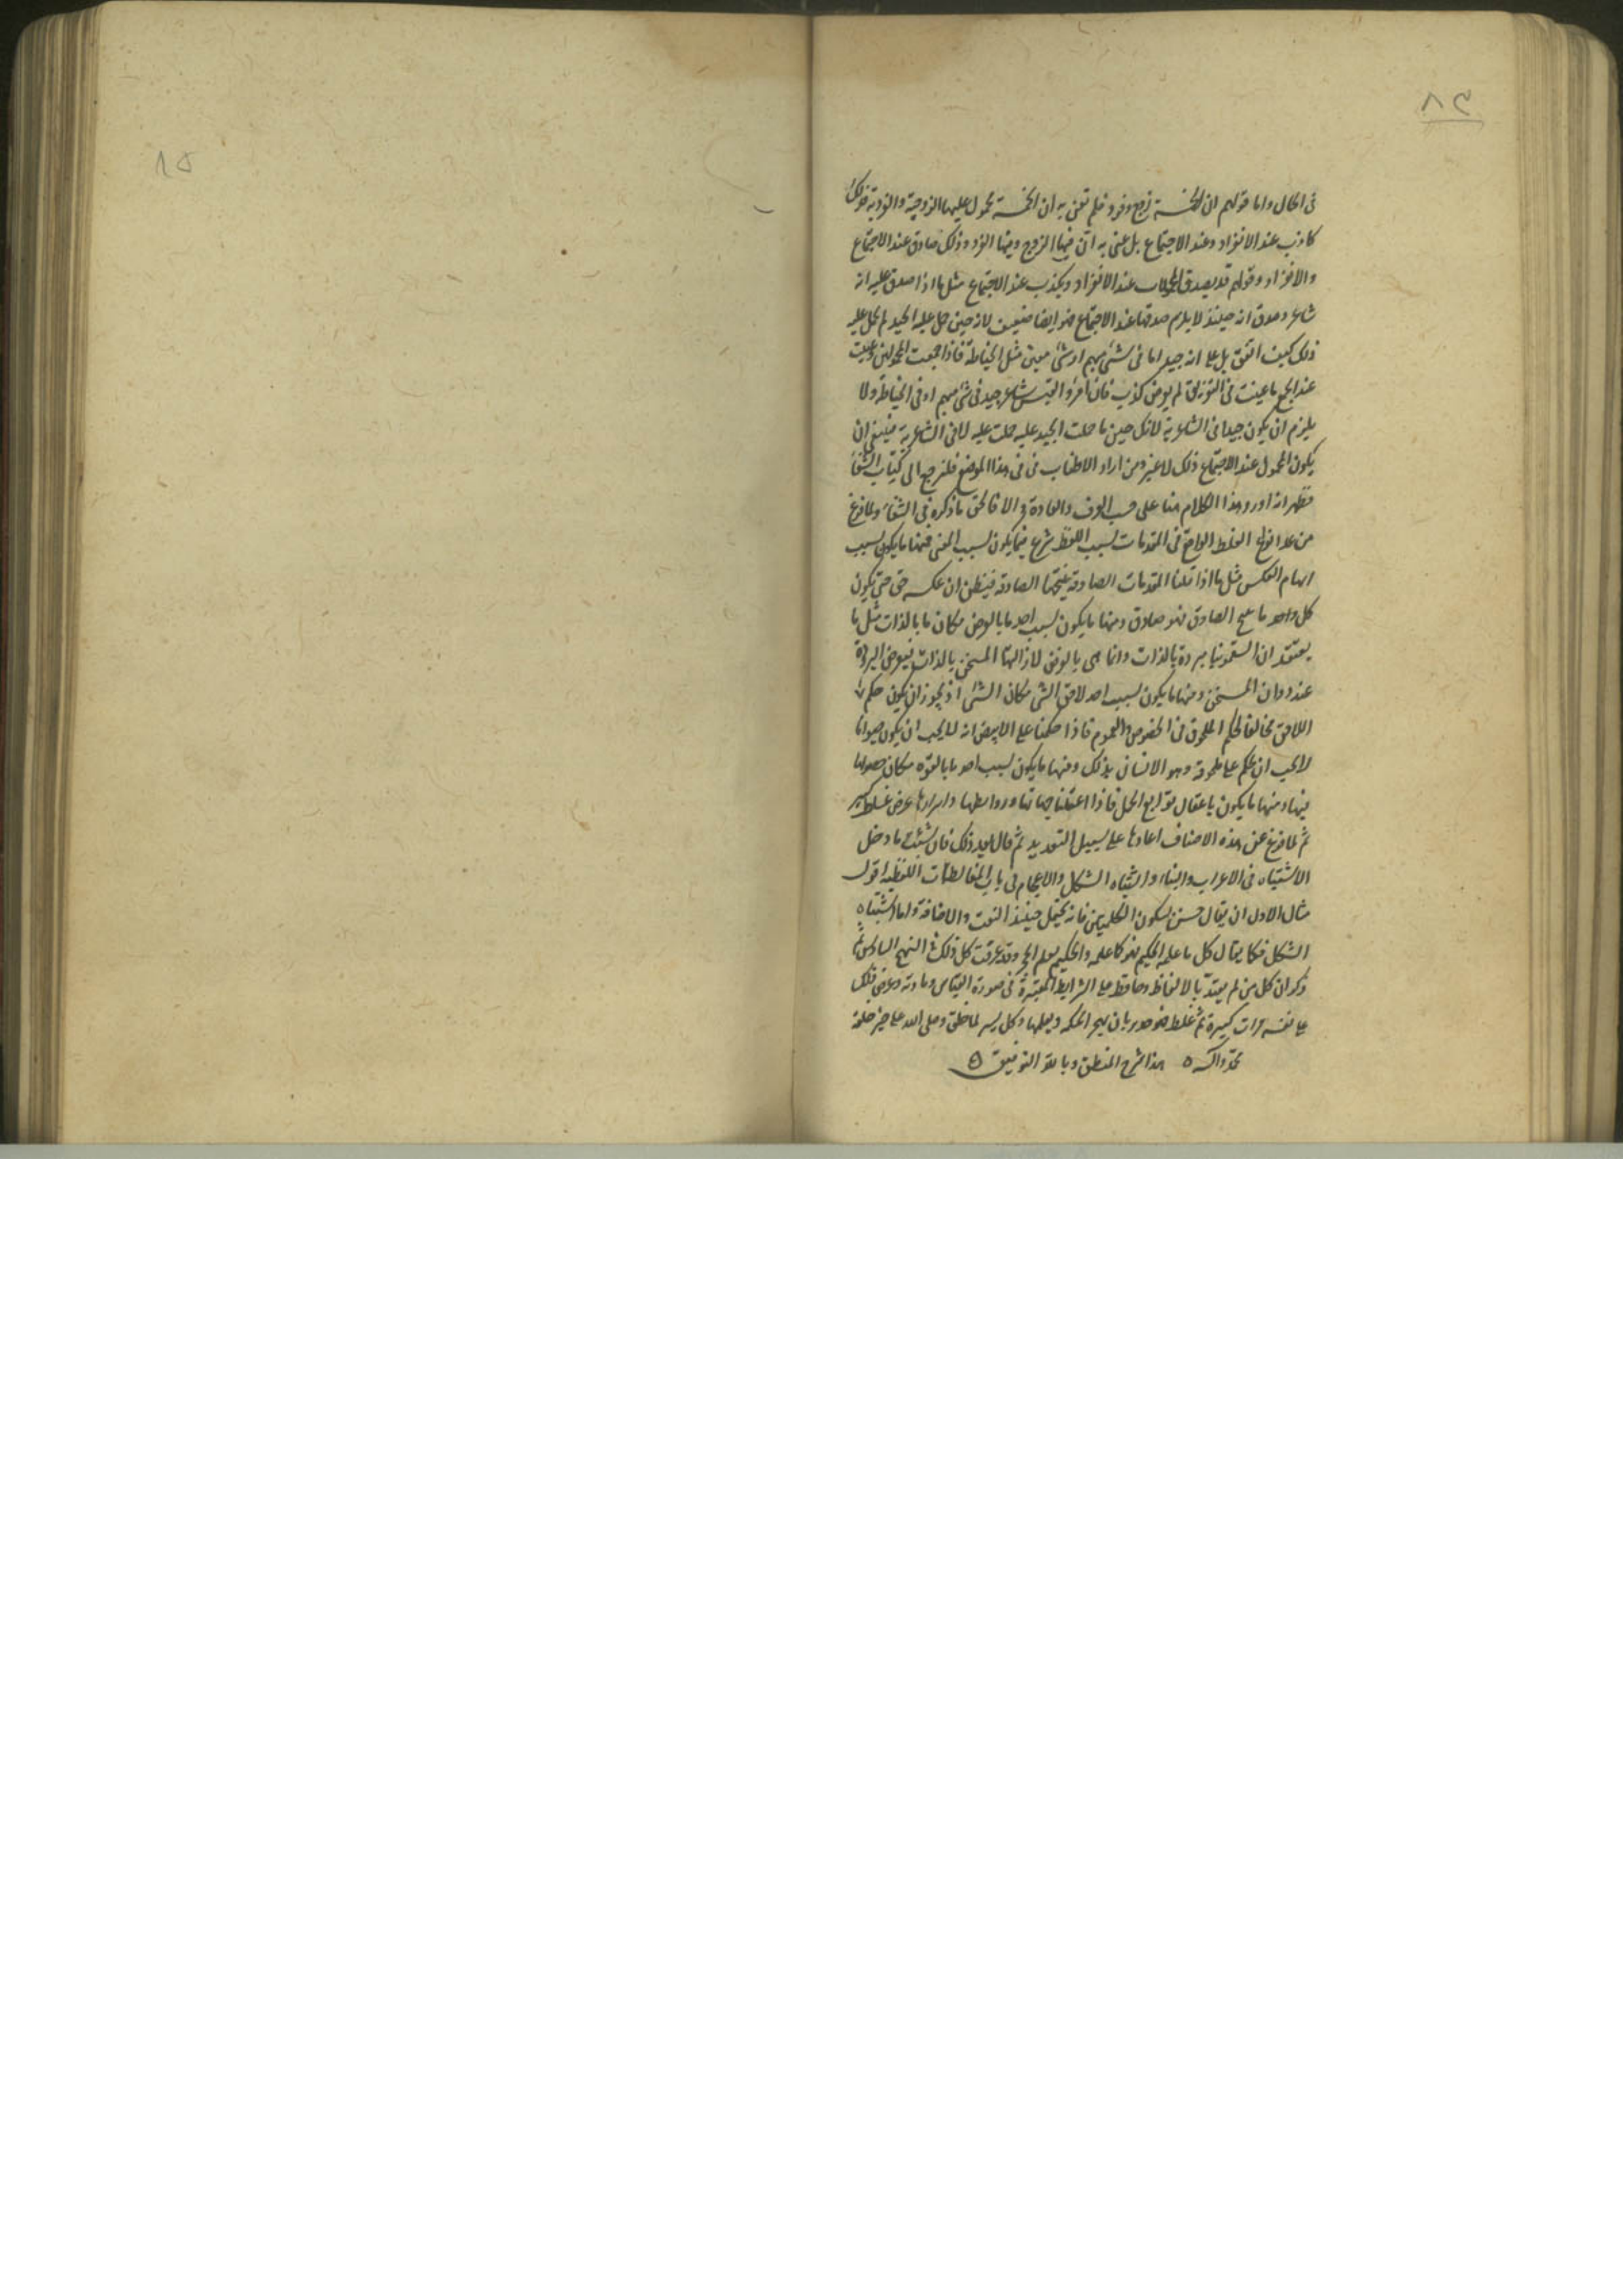 ٨٤
١٥
فى الحال واما قولهم ان الخمسة زوج وفرد فلم تعن به ان الخمسة محمول عليها الزوجية والفردية فذلك
كاذب عند الانفراد وعند الاجتماع بل عنى به ان فيها الزوج وفيها الفرد وذلك صادق عند الاجتماع
والافراد وقولهم قد يصدق المحمولات عند الانفراد ويكذب عند الاجتماع مثل ما اذا صدق عليه انه
شاعر وصدق انه حينئذ لا يلزم صدقها عند الاجتماع فهو ايضا ضعيف لانه حين حمل عليه الجيد لم يحمل عليه
ذلك كيف اتفق بل على انه جيد اما فى شئ مبهم او شئ معين مثل الخياطة فاذا جمعت المحمولين وعنيت
عند الجمع ما عنيت فى التفريق لم يعرض كذب فان امرؤ القيس شاعر جيد فى شئ مبهم او فى الخياطة ولا
يلزم ان يكون جيدا فى الشاعرية لانك حين ما حملت الجيد عليه حملت عليه لا فى الشاعرية فينبغى ان
يكون المحمول عند الاجتماع ذلك لا غير ومن اراد الاطناب فى فى هذا الموضع فليرجع الى كتاب الشفا
فظهر انه اورد هذا الكلام هنا على حسب العرف والعادة والا فالحق ما ذكره فى الشفاء ولما فرغ
من عد انواع الغلط الواقع فى المقدمات بسبب اللفظ شرع فيما يكون بسبب المعنى فمنها ما يكون بسبب
ايهام العكس مثل ما اذا قلنا المقدمات الصادقة نتيجتها الصادقة فيظن ان عكسه حق حتى يكون
كل واحد ما ينتج الصادق فهو صادق ومنها ما يكون بسبب اخذ ما بالعرض مكان ما بالذات مثل ما
يعتقد ان السقمونيا مبردة بالذات وانما هى بالعرض لازالتها المسخن بالذات فيعرض البرودة
عند زوال المسخن ومنها ما يكون بسبب اخذ لاحق الشئ مكان الشئ اذ يجوز ان يكون حكم
اللاحق مخالفا لحكم الملحوق فى الخصوص والعموم فاذا حكمنا على الابيض انه لا يجب ان يكون حيوانا
لا يجب ان نحكم على ملحوقه وهو الانسان بذلك ومنها ما يكون بسبب اخذ ما بالقوة مكان
ومنها ما يكون باغفال توابع الحمل فاذا اغفلنا جهاتها وروابطها واسوارها عرض غلط كثير
ثم لما فرغ عن هذه الاصناف اعادها على سبيل التعديد ثم قال بعد ذلك فان شئت فادخل
الاشتباه فى الاعراب والبناء واشتباه الشكل والاعجام فى باب المغالطات اللفظية اقول
مثال الاول ان يقال حسن بسكون الكلمتين فانه يحتمل حينئذ النعت والاضافة واما اشتباه
الشكل فكما يقال كل ما علمه الحكيم فهو كما علمه والحكيم يعلم الحجر وقد عرفت كل ذلك فى النهج السادس ثم
ذكر ان كل من لم يعتد بالالفاظ وحافظ على الشرايط المعتبرة فى صورة القياس ومادته وعرض ذلك
على نفسه مرات كثيرة ثم غلط فهو جدير بان يهجر الحكمة وتعلمها وكل ميسر لما خلق وصلى الله على خير خلقه
محمد وآله ه هذا شرح المنطق وبالله التوفيق ه